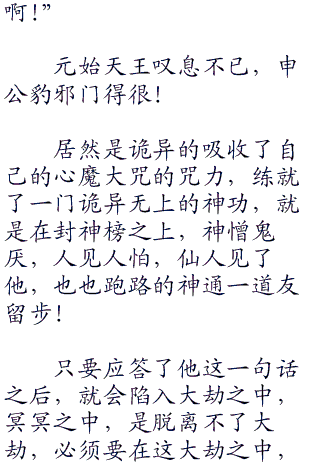 啊！”
元始天王叹息不已，申
公豹邪门得很！
居然是诡异的吸收了自
己的心魔大咒的咒力，练就
了一门诡异无上的神功，就
是在封神榜之上，神憎鬼
厌，人见人怕，仙人见了
他，也也跑路的神通一道友
留步！
只要应答了他这一句话
之后，就会陷入大劫之中，
冥冥之中，是脱离不了大
劫，必须要在这大劫之中，